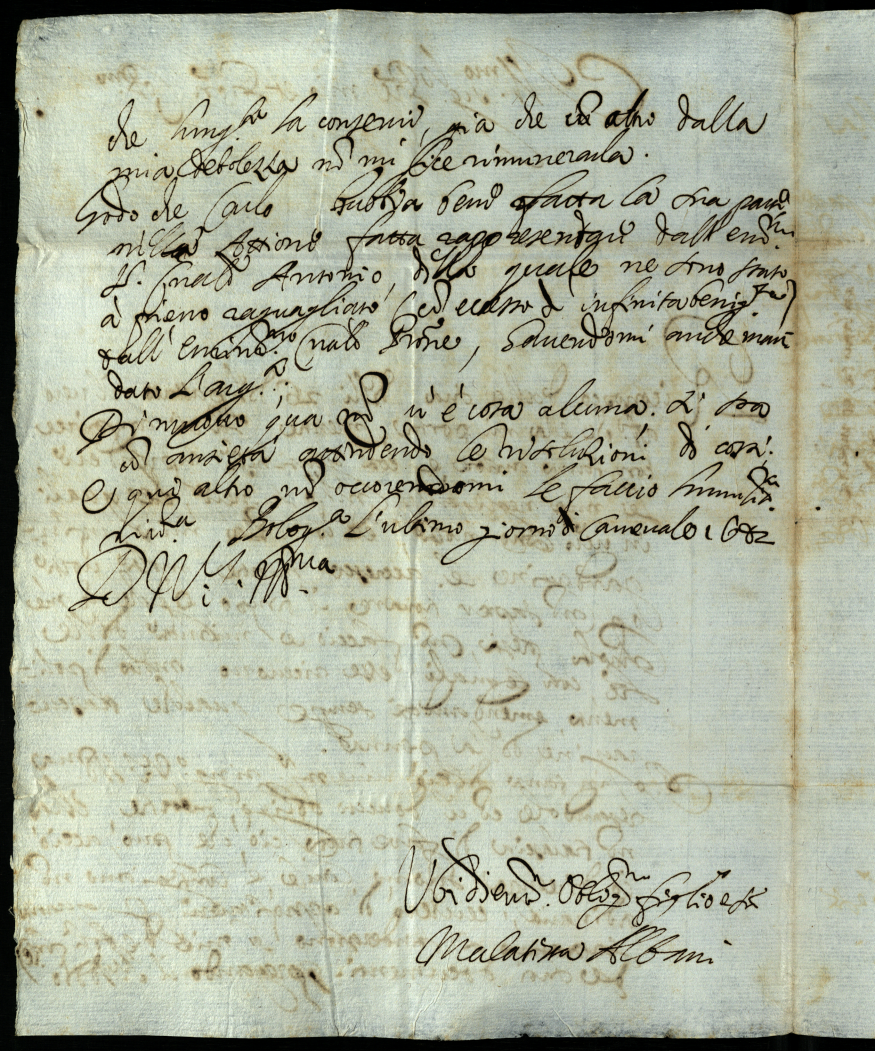 che lung.te la conservi, già che cō altro dalla
mia debolezza nō mi lice rimunerarla.
Godo che Carlo habbia bene fatta la sua parte
nella Attione fatta rappresentare dall' em.mo
S. Antonio, della quale ne sono stato
à pieno raguagliato (cō ecesso d' infinita benig.tà)
dall' Card.le, havendomi anche man
dato
Di nuovo qua nō vi è cosa alcuna. Si sta
cō ansietà attendendo le risoluzioni di costì.
E qui altro nō occorrendomi le faccio humil.ma
riv.a Bolog.a L'ultimo giorno di Carnevale 1682
D V. S. Ill.ma
Ubidient. Oblig.mo figlio e
Malatesta Albani